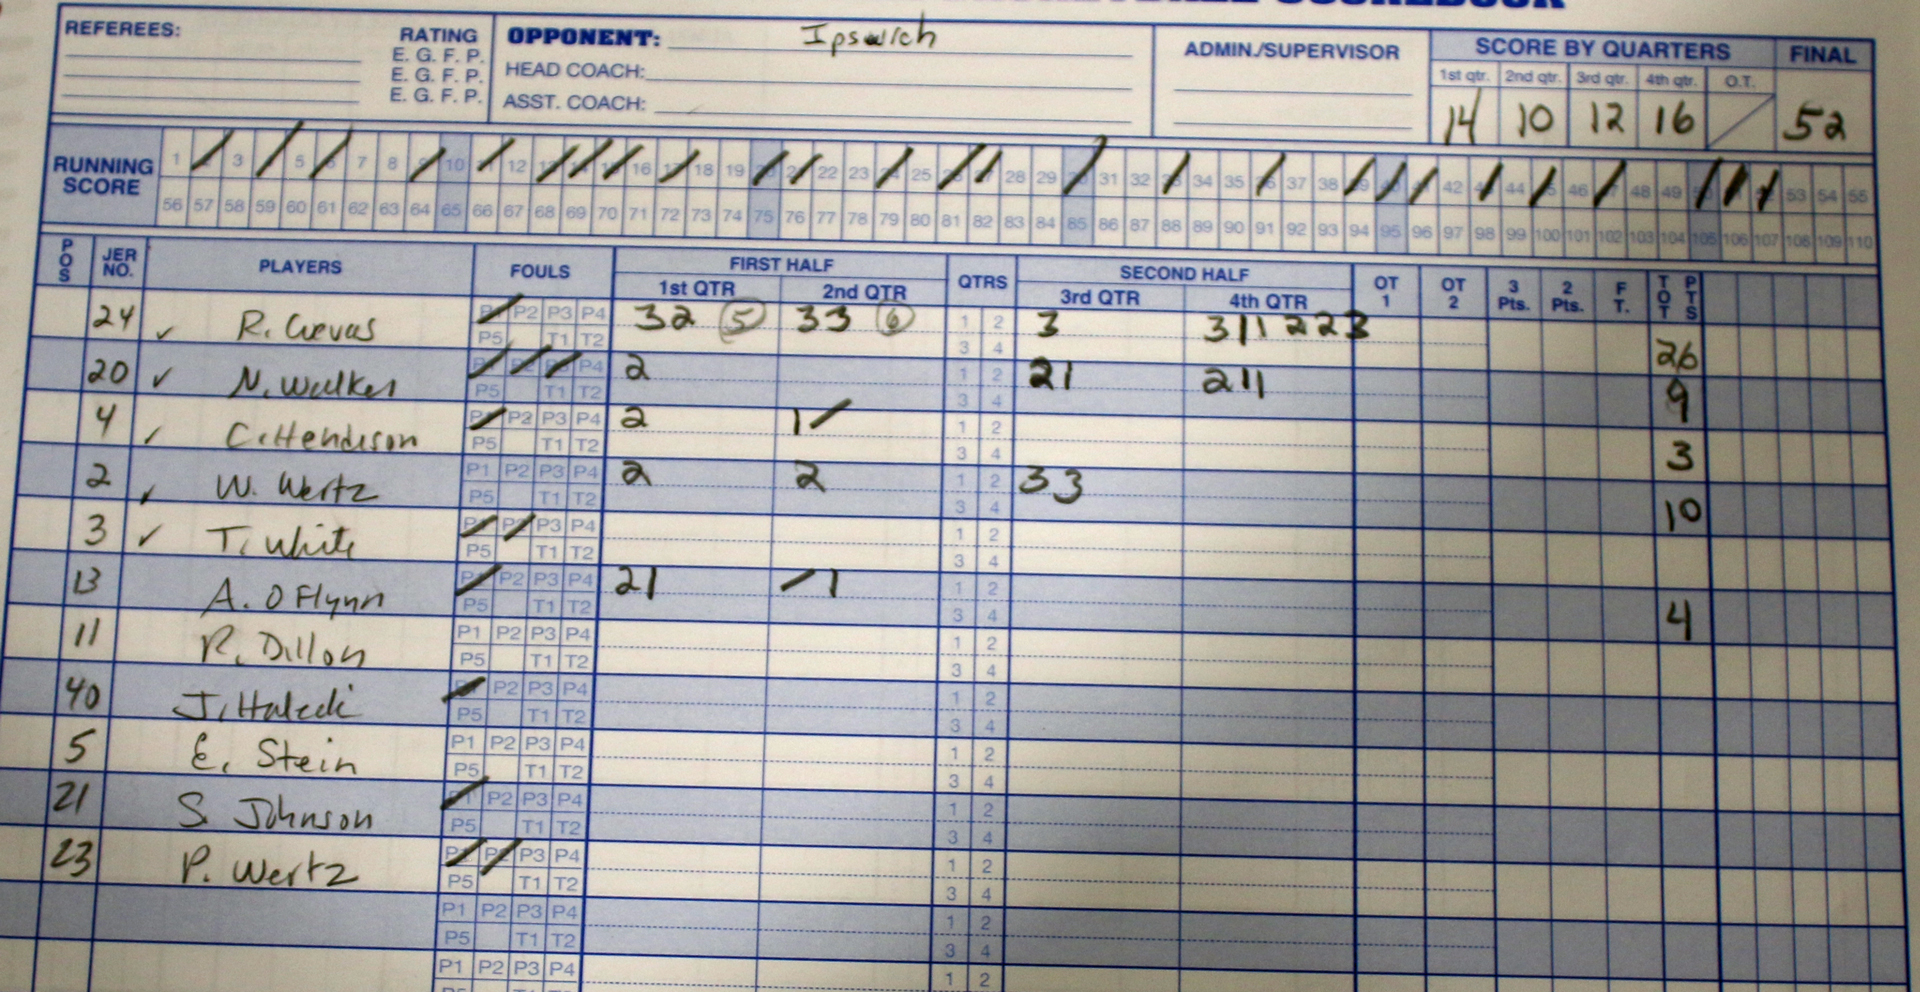 REFEREES: RATING OPPONENT: Ipswich ADMIN./SUPERVISOR SCORE BY QUARTERS FINAL
E. G. F. P. HEAD COACH: 1st qtr. 2nd qtr. 3rd qtr. 4th qtr. O.T.
E. G. F. P.
E. G. F. P. ASST. COACH: 14 10 12 16 52
RUNNING SCORE
1 3 5 7 8 10 12 16 18 19 22 23 25 28 29 31 32 34 35 37 38 42 44 46 48 49 53 54 55
56 57 58 59 60 61 62 63 64 65 66 67 68 69 70 71 72 73 74 75 76 77 78 79 80 81 82 83 84 85 86 87 88 89 90 91 92 93 94 95 96 97 98 99 100 101 102 103 104 105 106 107 108 109 110
POS JER NO. PLAYERS FOULS FIRST HALF QTRS SECOND HALF OT 1 OT 2 3 Pts. 2 Pts. F T. TOT PTS
1st QTR 2nd QTR 3rd QTR 4th QTR
24 R. Cuevas P2 P3 P4 32 5 33 6 1 2 3 311223 26
P5 T1 T2 3 4
20 N. Walker P4 2 1 2 21 211 9
P5 T1 T2 3 4
4 C. Henderson P2 P3 P4 2 1 1 2 3
P5 T1 T2 3 4
2 W. Wertz P1 P2 P3 P4 2 2 1 2 33 10
P5 T1 T2 3 4
3 T. White P3 P4 1 2
P5 T1 T2 3 4
13 A. O Flynn P2 P3 P4 21 1 1 2 4
P5 T1 T2 3 4
11 R. Dillon P1 P2 P3 P4 1 2
P5 T1 T2 3 4
40 J. P2 P3 P4 1 2
P5 T1 T2 3 4
5 E. Stein P1 P2 P3 P4 1 2
P5 T1 T2 3 4
21 S. Johnson P2 P3 P4 1 2
P5 T1 T2 3 4
23 P. Wertz P3 P4 1 2
P5 T1 T2 3 4
P1 P2 P3 P4 1 2
P5 T1 T2 3 4
P1 P2 P3 P4 1 2